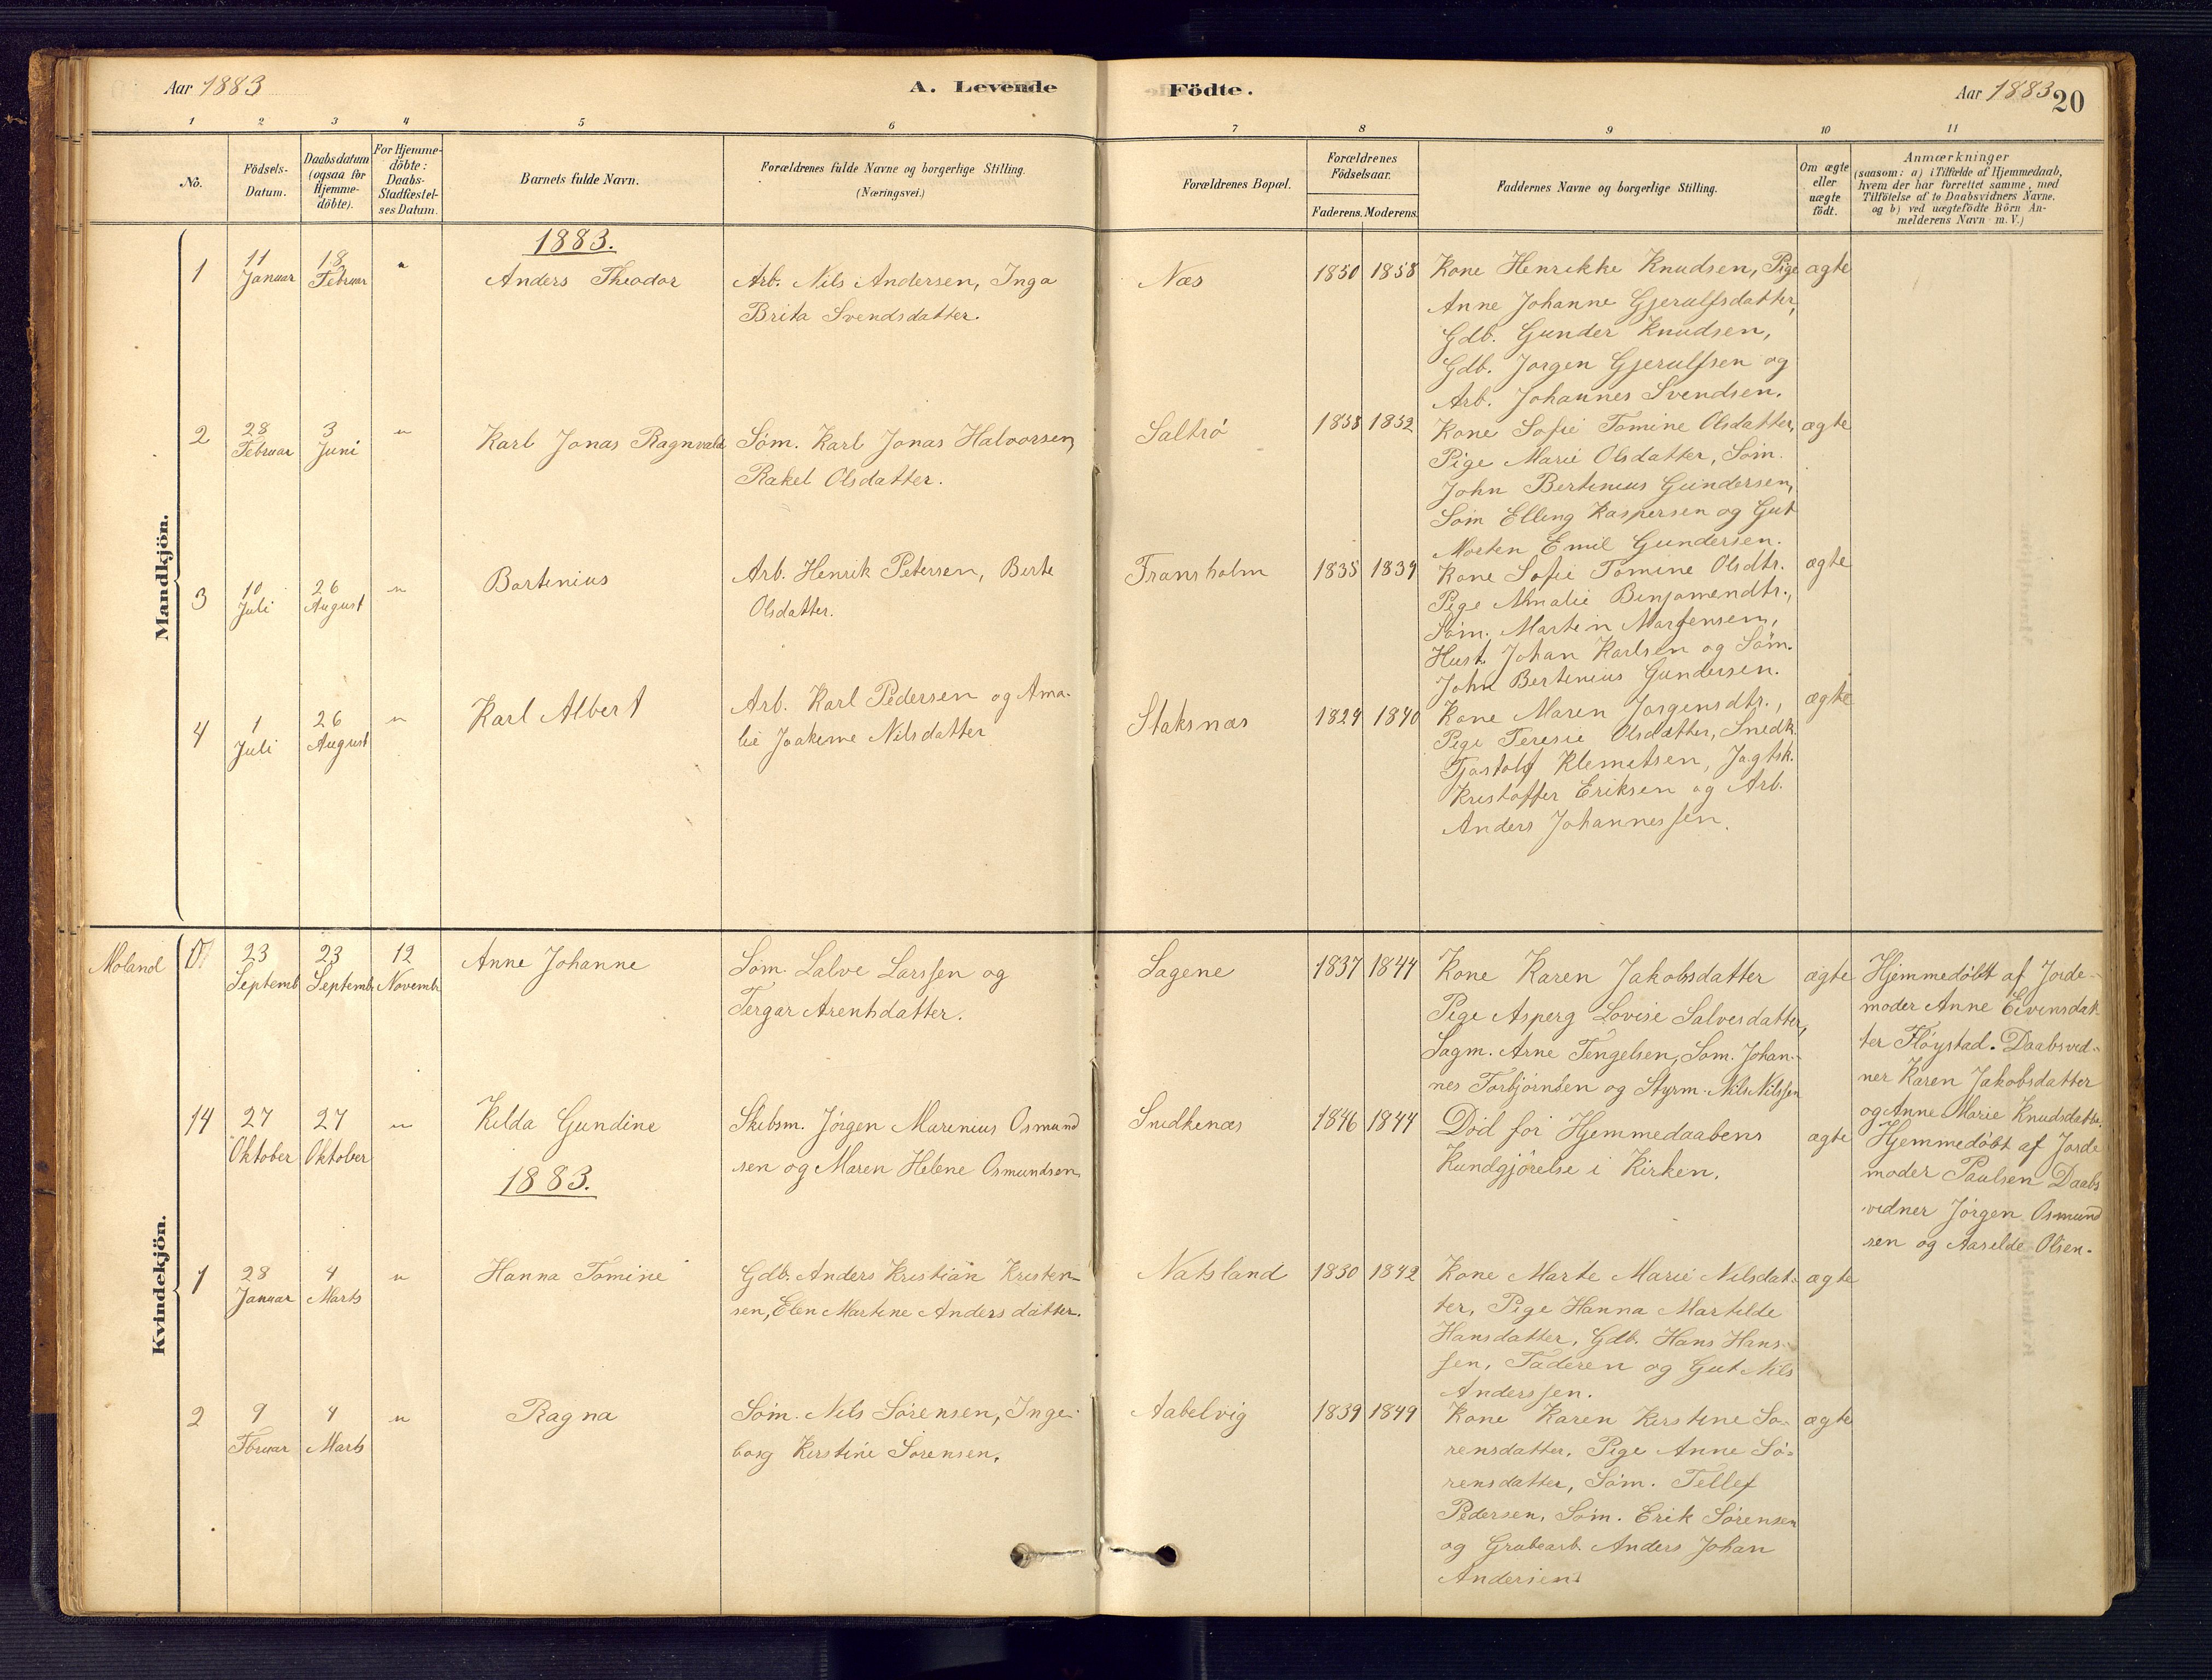 Aar 1883
A. Levende
Födte.
Aar 1883
20
1 2 3 4 5 6 7 8 9 10 11
No.
Födsels-
Datum.
Daabsdatum
(ogsaa for
Hjemme-
döbte).
For Hjemme-
döbte:
Daabs-
Stadfæstel-
ses Datum.
Barnets fulde Navn.
Forældrenes fulde Navne og borgerlige Stilling.
(Næringsvei.)
Forældrenes Bopæl.
Forældrenes
Födselsaar.
Faderens. Moderens.
Faddernes Navne og borgerlige Stilling.
Om ægte
eller
uægte
födt.
Anmærkninger
(saasom: a) i Tilfælde af Hjemmedaab,
hvem der har forrettet samme, med
Tilföielse af to Daabsvidners Navne.
og b) ved uægtefödte Börn An-
melderens Navn m. V.)
Mandkjön.
1883.
1
11
Januar
18
Februar
"
Anders Theodor
Arb. Nils Andersen, Inga
Brita Svendsdatter.
Næs
1850 1858
Kone Henrikke Knudsen, Pige
Anne Johanne Gjerulfsdatter,
Gdb. Gunder Knudsen,
Gdb. Jørgen Gjerulfsen og
Arb. Johannes Svendsen.
ægte
2
28
Februar
3
Juni
"
Karl Jonas Ragnvald
Søm. Karl Jonas Halvorsen,
Rakel Olsdatter.
Saltrø
1838 1832
Kone Sofie Tomine Olsdatter,
Pige Marie Olsdatter, Søm.
John Bertinius Gundersen,
Søm Elling Kaspersen og Gut
Morten Emil Gundersen.
ægte
3
10
Juli
26
August
"
Bertinius
Arb. Henrik Petersen, Berte
Olsdatter.
Fransholm
1835 1839
Kone Sofie Tomine Olsdtr.
Pige Amalie Benjamendtr.,
Søm. Martin
Hust. Johan Karlsen og Søm.
John Bertinius Gundersen.
ægte
4
1
Juli
26
August
"
Karl Albert
Arb. Karl Pedersen og Ama-
lie Joakime Nilsdatter
Staksnæs
1829 1840
Kone Maren Jørgensdtr.,
Pige Teresie Olsdatter, Snedk.
Tjøstolf Klemetsen, Jagtsk.
Kristoffer Eriksen og Arb.
Anders Johannessen.
ægte
Kvindekjön.
Moland
23
Septemb
23
Septemb
12
Novembr
Anne Johanne
Søm. Salve Larssen og
Tergar Arentsdatter.
Sagene
1837 1844
Kone Karen Jakobsdatter
Pige Asperg Lovise Salvesdatter,
Sagm. Arne Tengelsen, Søm. Johan-
nes Torbjørnsen og Styrm. Nils Nilssen
ægte
Hjemmedøbt af Jorde-
moder Anne Eivensdat-
ter Fløystad. Daabsvid-
ner Karen Jakobsdatter
og Anne Marie Knudsdatter.
14
27
Oktober
27
Oktober
"
Kilda Gundine
Skibsm. Jørgen Marenius Osmund
sen og Maren Helene Osmundsen.
Snedkenæs
1846 1844
Død før Hjemmedaabens
Kundgjørelse i Kirken.
ægte
Hjemmedøbt af Jorde
moder Paulsen Daabs
vidner Jørgen Osmund
sen og Aaselde Olsen.
1883.
1
28
Januar
4
Marts
"
Hanna Tomine
Gdb. Anders Kristian Kristen-
sen, Elen Martine Andersdatter.
Natsland
1830 1842
Kone Marte Marie Nilsdat-
ter, Pige Hanna Martilde
Hansdatter, Gdb. Hans Hans-
sen, Faderen og Gut Nils
Anderssen.
ægte
2
9
Februar
4
Marts
"
Ragna
Søm. Nils Sørensen, Inge-
borg Kirstine Sørensen.
Aabelvig
1839 1849
Kone Karen Kirstine Sø-
rensdatter, Pige Anne Sø-
rensdatter, Søm. Tellef
Pedersen, Søm. Erik Sørensen
og Grubearb. Anders Johan
Andersen.
ægte